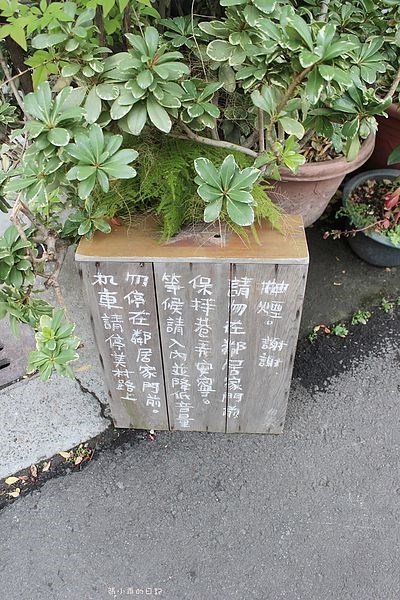 机車請停美村路上
勿停在鄰居家門前。
等候請入內並降低音量
保持巷弄安寧。
請勿在鄰居家門前
抽煙。謝謝